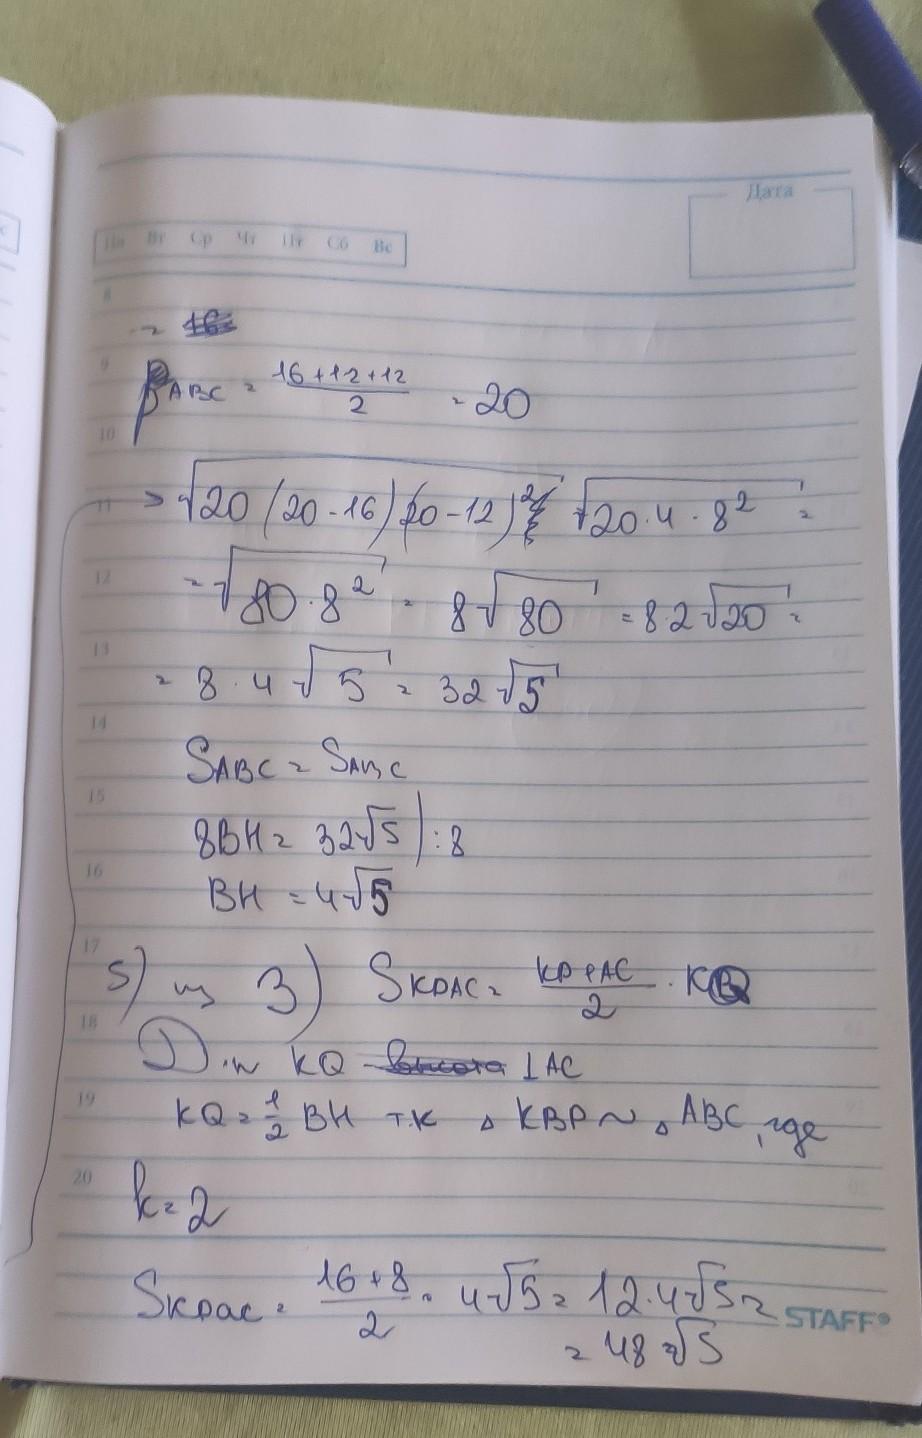 Дата
Пн Вт Ср Чт Пт Сб Вс
8
= 16
9
pABC = 16+12+12 / 2 = 20
10
11 > √20(20-16)(20-12)² √20·4·8² =
12 = √80·8² = 8√80 = 8·2√20 =
13
= 8·4√5 = 32√5
14
SABC = SABC
15
8BH = 32√5 | :8
16
BH = 4√5
17
5) из 3) SKPAC = KP+AC / 2 · KQ
18
D.п KQ высота ⊥AC
19
KQ = 1/2 BH т.к △ KBP ~ △ ABC, где
20
k = 2
SKPAC = 16+8 / 2 · 4√5 = 12·4√5 =
STAFF
= 48√5